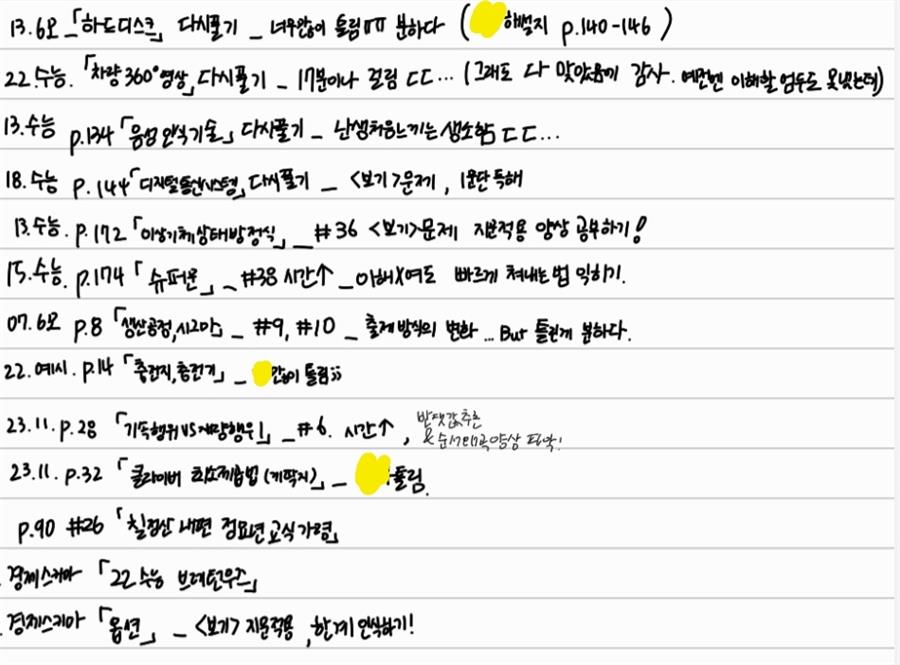 13.6모 _「하드디스크」 다시풀기 _ 너무많이 틀림ㅠㅠ 분하다 ( 해설지 p.140-146 )
22.수능.「차량 360° 영상」다시풀기 _ 17분이나 걸림 ㄷㄷ... (그래도 다 맞았음에 감사. 예전엔 이해할 엄두도 못냈는데)
13.수능 p.134「음성인식기술」다시풀기 _ 난생처음느끼는 생소함 ㄷㄷ...
18.수능 p.144「디지털통신시스템」다시풀기 _ <보기>문제, 1문단 독해
13.수능. p.172「이상기체상태방정식」_ #36 <보기>문제 지문적용 양상 공부하기!
15.수능. p.174「슈퍼문」_ #38 시간↑ _이해X여도 빠르게 쳐내는법 익히기.
07.6모 p.8「생산공정, 시그마」_ #9, #10 _ 출제방식의 변화 ... But 틀린게 분하다.
22.예시. p.14「충전지, 충전기」_ 많이 틀림;;
23.11. p.28「기속행위 VS 재량행위」_ #6. 시간↑,
& 순서 양상 파악!
23.11. p.32「클라이버 최소제곱법 (게딱지)」_ 틀림.
p.90 #26「칠정산 내편 정묘년 교식 가령」
경제스키마「22수능 브레턴우즈」
경제스키마「옵션」_ <보기> 지문적용, 한계 인식하기!